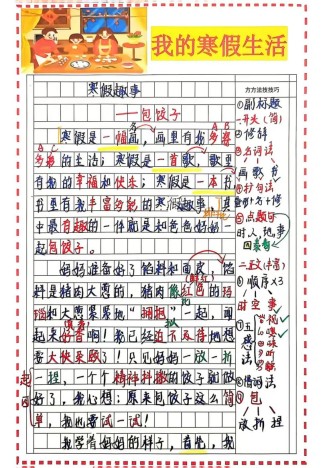 我的寒假生活
寒假趣事
——包饺子
寒假是一幅画，画里有我多姿
多彩的生活；寒假是一首歌，歌里
有我的幸福和快乐；寒假是一本书
书里有我丰富多彩的寒假趣事，其
中最有趣的一件就是和爸爸妈妈一
起包饺子。
妈妈准备好了馅料和面皮，馅
料是猪肉大葱的，猪肉像红色的玛
瑙和大葱紧紧地“拥抱”一起，闻
起来好香啊！我已经迫不及待地想
要大快朵颐了！只见妈妈一放一折
一捏，一个个精神抖擞的饺子就做
好了，我心想：原来包饺子这么简
单，我也要试一试！
我学着妈妈的样子，首先，我
方方法技技巧
①副标题
一开头（简）
②修辞
③名词法
画 歌 书
④抒句法
⑤点题句
时人，地，事
二正文（丰富）
①顺序x3
时 空 事
②五感法
③动词法
④包
放 折 捏